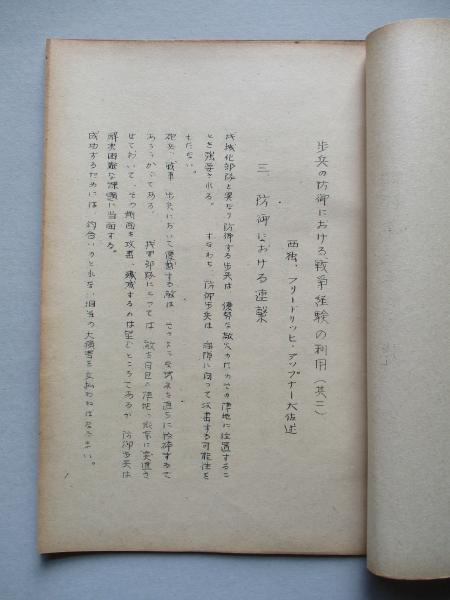 歩兵の防御における戦争経験の利用（其二）
西独、フリードリッヒ・アップナー大佐述
三、防御における逆襲
機械化部隊と異なり防御する歩兵は、優勢な敵火力下でその陣地に位置するこ
とを強要される。すなわち、防御歩兵は、側に向って攻撃する可能性を
もたない。
砲兵、戦車、歩兵において優勢する敵は、そのような逆襲を直ちに粉砕するで
あろうからである。我甲部隊にとっては、敵を自己の陣地に突進さ
せておいて、その側面を攻撃、殲滅するのは望むところであるが、防御歩兵は
解決困難な課題に当面する。
成功するためには、釣合いのとれない相当の大損害を支払わねばならない。